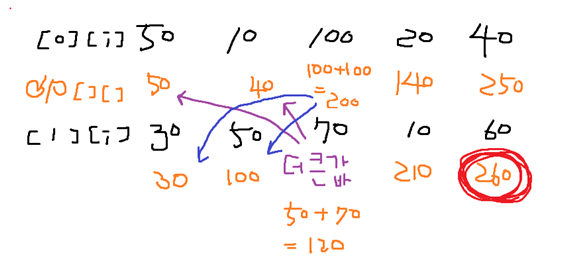 [0][i] 50 10 100 20 40
dp[][] 50 40 100+100 140 250
=200
[1][i] 30 50 70 10 60
30 100 더 큰 값 210 260
50+70
=120